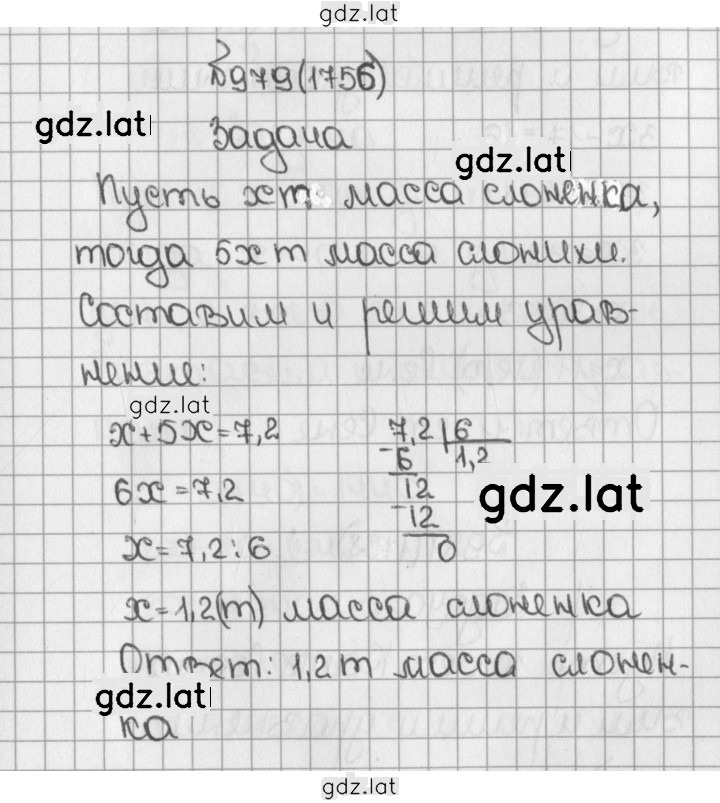 gdz.lat
№979(1756)
gdz.lat
Задача
gdz.lat
Пусть x т масса слоненка,
тогда 5x т масса слонихи.
Составим и решим урав-
нение:
gdz.lat
x+5x=7,2
6x=7,2
x=7,2:6
7,2 6
-6 1,2
12
-12
0
gdz.lat
x=1,2(т) масса слоненка
Ответ: 1,2 т масса слонен-
gdz.lat
ка
gdz.lat